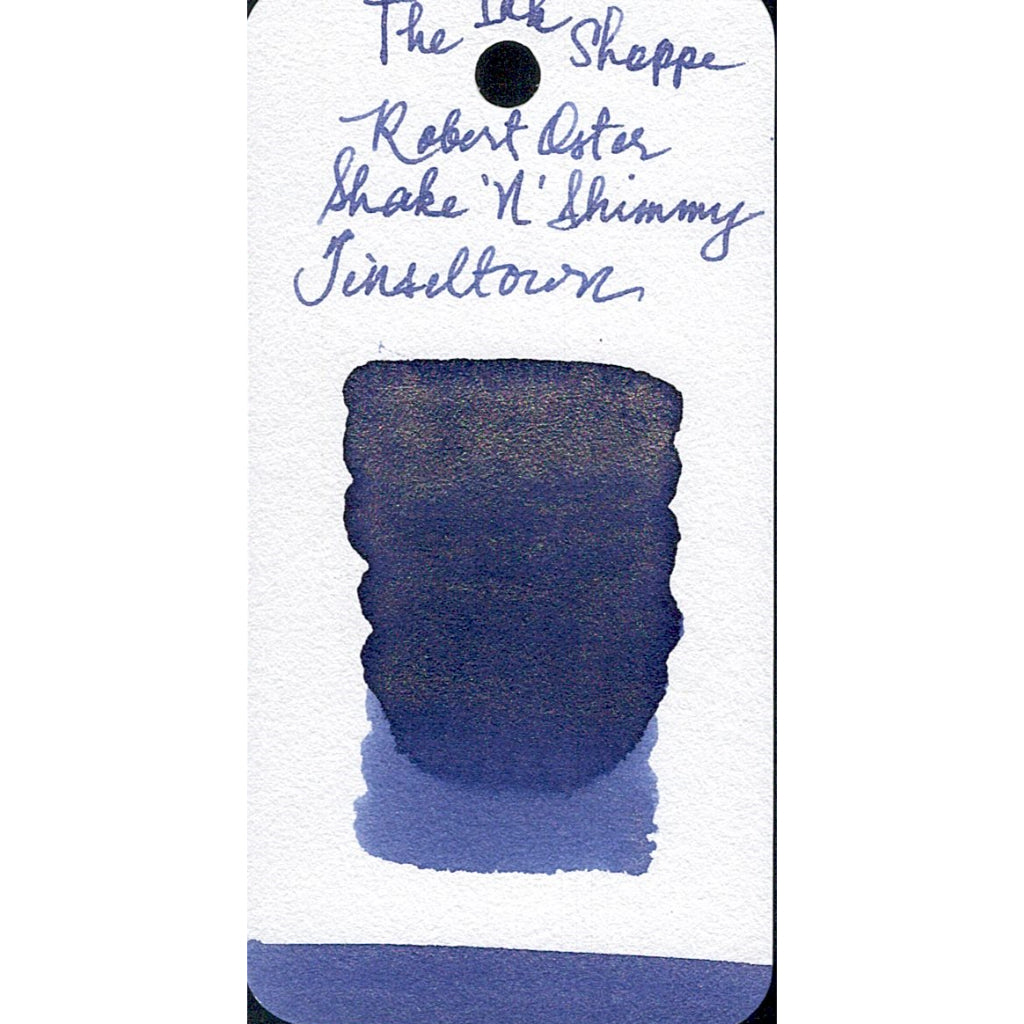 The Ink Shoppe
Robert Oster
Shake 'N' Shimmy
Tinseltown